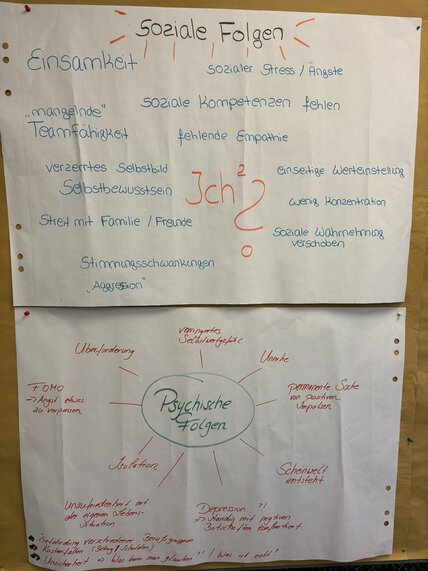 Soziale Folgen
Einsamkeit
sozialer Stress / Ängste
„mangelnde"
Teamfähigkeit
soziale Kompetenzen fehlen
fehlende Empathie
verzerrtes Selbstbild
Selbstbewusstsein
Ich ?
2
einseitige Werteinstellung
wenig Konzentration
Streit mit Familie / Freunde
soziale Wahrnehmung
verschoben
Stimmungsschwankungen
„Aggression"
Psychische
Folgen
Überforderung
verringertes
Selbstwertgefühl
Unruhe
FOMO
→ Angst etwas
zu verpassen
permanente Suche
von positiven
Impulsen
Isolation
Scheinwelt
entsteht
Unzufriedenheit mit
der eigenen Lebens-
situation
Depression ?!
→ Ständig mit negativen
Botschaften konfrontiert
Gefährdung verschiedener Berufsgruppen
Kostenfallen (Betrug/Schulden)
Unsicherheit → Was kann man glauben?! / Was ist echt?